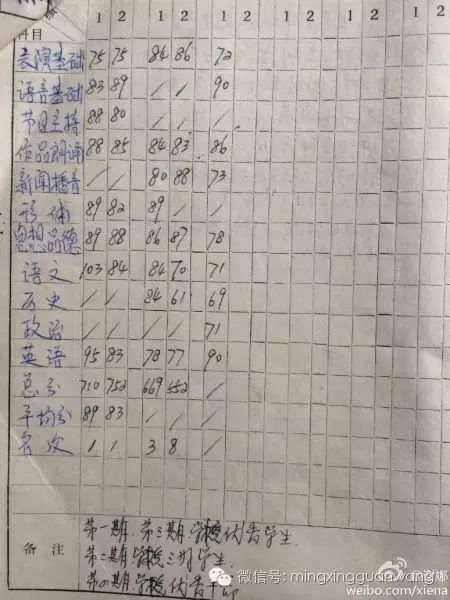 1 2 1 2 1 2 1 2 1 2 1 2
科目
表演基础 75 75 84 86 72
语言基础 83 89 / / 90
节目主持 88 80 / / /
作品朗诵 88 85 84 83 86
新闻播音 / / 80 88 73
形体 89 82 89 / /
思想品德 89 88 86 87 78
语文 103 84 84 70 71
历史 / / 84 61 69
政治 / / / / 71
英语 95 83 78 77 90
总分 710 752 669 552 /
平均分 89 83 / / /
名次 1 1 3 8 /
备注
第一期、第三期 学校优秀学生.
第二期 学校三好学生.
第四期 学校优秀干部
微信号: mingxingguanwang
weibo.com/xiena